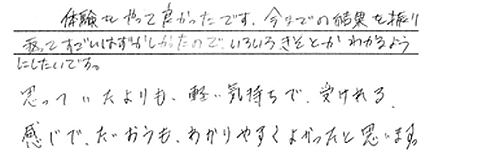 体験をやって良かったです。今までの結果を振り
返ってすごいはずかしかったので、いろいろきそとかわかるよう
にしたいです。
思っていたよりも、軽い気持ちで、受けれる、
感じで、たいおうも、わかりやすくよかったと思います。